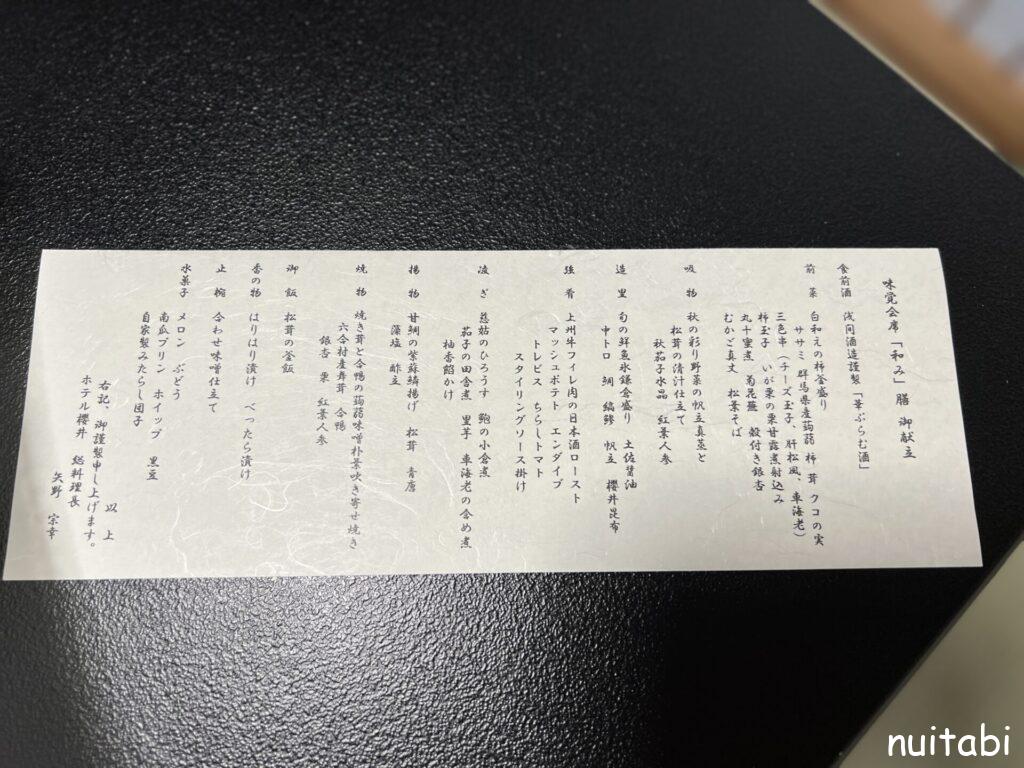 味覚会席「和み」膳 御献立
食前酒 浅間酒造謹製「華ぷらむ酒」
前菜 白和えの柿釜盛り
ササミ 群馬県産蒟蒻 柿 茸 クコの実
三色串(チーズ玉子、肝松風、車海老)
柿玉子 いが栗の栗甘露煮射込み
丸十蜜煮 菊花蕪 殻付き銀杏
むかご真丈 松葉そば
吸物 秋の彩り野菜の帆立真蒸と
松茸の清汁仕立て
秋茄子水晶 紅葉人参
造里 旬の鮮魚氷鎌倉盛り 土佐醤油
中トロ 鯛 縞鯵 帆立 櫻井昆布
強肴 上州牛フィレ肉の日本酒ロースト
マッシュポテト エンダイブ
トレビス ちらしトマト
スタイリングソース掛け
凌ぎ 慈姑のひろうす 鮑の小倉煮
茄子の田舎煮 里芋 車海老の含め煮
柚香餡かけ
揚物 甘鯛の紫蘇鱗揚げ 松茸 青唐
藻塩 酢立
焼物 焼き茸と合鴨の蒟蒻味噌朴葉吹き寄せ焼き
六合村産舞茸 合鴨
銀杏 栗 紅葉人参
御飯 松茸の釜飯
香の物 はりはり漬け べったら漬け
止椀 合わせ味噌仕立て
水菓子 メロン ぶどう
南瓜プリン ホイップ 黒豆
自家製みたらし団子
以上
右記、御謹製申し上げます。
ホテル櫻井 総料理長
矢野 宗幸
nuitabi